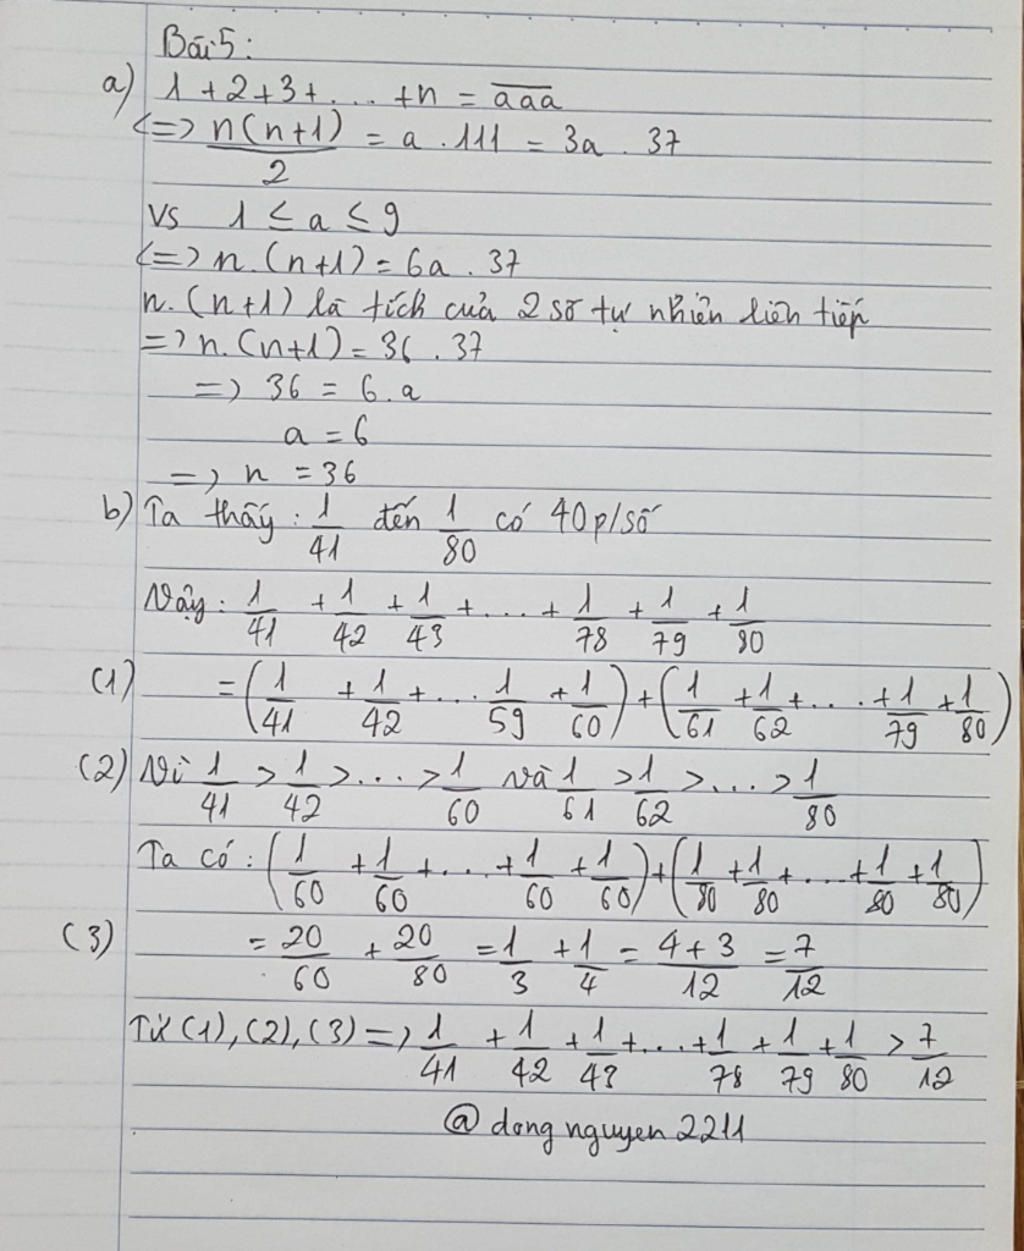 Bài 5:
a) 1 + 2 + 3 + ... + n = \overline{aaa}
<=> n(n+1)/2 = a . 111 = 3a . 37
vs 1 ≤ a ≤ 9
<=> n.(n+1) = 6a . 37
n.(n+1) là tích của 2 số tự nhiên liên tiếp
=> n.(n+1) = 36 . 37
=> 36 = 6.a
a = 6
=> n = 36
b) Ta thấy: 1/41 đến 1/80 có 40 p/số
Vậy: 1/41 + 1/42 + 1/43 + ... + 1/78 + 1/79 + 1/80
(1) = (1/41 + 1/42 + ... 1/59 + 1/60) + (1/61 + 1/62 + ... + 1/79 + 1/80)
(2) Vì 1/41 > 1/42 > ... > 1/60 và 1/61 > 1/62 > ... > 1/80
Ta có: (1/60 + 1/60 + ... + 1/60 + 1/60) + (1/80 + 1/80 + ... + 1/80 + 1/80)
(3) = 20/60 + 20/80 = 1/3 + 1/4 = 4+3/12 = 7/12
Từ (1), (2), (3) => 1/41 + 1/42 + 1/43 + ... + 1/78 + 1/79 + 1/80 > 7/12
@dongnguyen2211